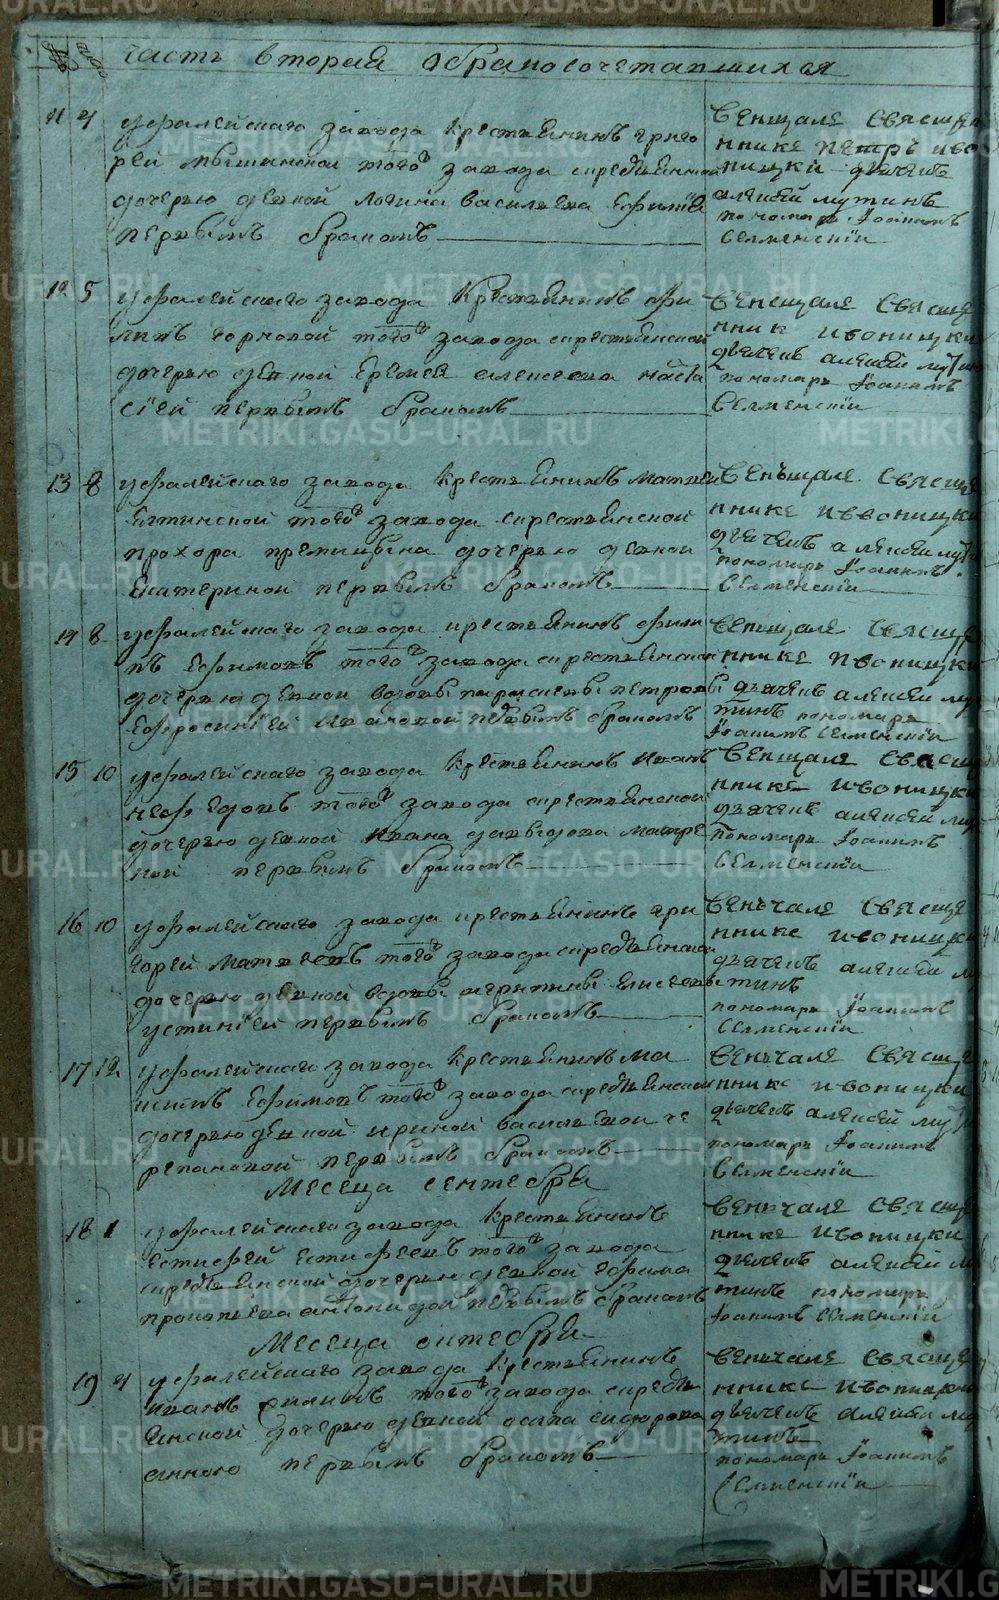 часть вторая обракосочетавшихся
11 4 уфалейскаго завода крестьянинъ григо
рей мышинской того завода скрестьянскою
дочерью девкой логина васильева
первымъ бракомъ
венчале свяще
ннике петръ иво
ницки дьячекъ
алексей мутинъ
пономарь Иоаннъ
Селменскiи
12 5 уфалейскаго завода крестьянинъ фи
липъ горновой того завода скрестьянской
дочерью девкой еремея алексеева наста
сiей первымъ бракомъ
венчале свяще
нник ивоницки
дьячекъ алексей мутин
пономарь Иоаннъ
Селменскiи
13 8 уфалейскаго завода крестьянинъ матвей
елтинской того завода скрестьянской
прохора дочерью девкой
екатериной первымъ бракомъ
венчале свяще
ннике ивоницки
дьячекъ алексеи мути
пономарь Иоаннъ
Селменскiи
14 8 уфалейскаго завода крестьянинъ фили
пъ ефимовъ того завода скрестьянской
дочерью девкой вдовы парасковьи петровы
ефросинiей ивановой первымъ бракомъ
венчале свяще
ннике ивоницки
дьячекъ алексеи му
тинъ пономарь
Иоаннъ Селменскiи
15 10 уфалейскаго завода крестьянинъ иванъ
неф едовъ того завода скрестьянской
дочерью девкой ивана давыдова матре
ной первымъ бракомъ
венчале свяще
ннике ивоницки
дьячекъ алексеи му
пономарь Иоаннъ
Селменскiи
16 10 уфалейскаго завода крестьянинъ гри
горей матвеевъ того завода скрестьянской
дочерью девкой вдовы елисеевы
устинiей первымъ бракомъ
венчале свяще
ннике ивоницки
дьячекъ алексеи му
тинъ
пономарь Иоаннъ
Селменскiи
17 12 уфалейскаго завода крестьянинъ ма
ксимъ ефимовъ того завода скрестьянской
дочерью девкой ириной васильевой че
репановой первымъ бракомъ
венчале свяще
ннике ивоницки
дьячекъ алексей мути
пономарь Иоаннъ
Селменскiи
Месеца сентебря
18 1 уфалейскаго завода крестьянинъ
естифей естифеевъ того завода
скрестьянской дочерью девкой ефима
прокопьева антонидой первымъ бракомъ
венчале свяще
ннике ивоницки
дьячекъ алексей му
тинъ пономарь
Иоаннъ Селменскiи
Месеца октебря
19 4 уфалейскаго завода крестьянинъ
иванъ того завода скресть
янской дочерью девкой осипа сидорова
анною первымъ бракомъ
венчале свяще
ннике ивоницки
дьячекъ алексеи му
тинъ
пономарь Иоаннъ
Селменскiи
METRIKI.GASO-URAL.RU